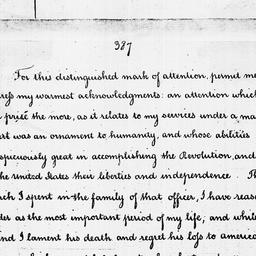 387
For this distinguished mark of attention, permit me
my warmest acknowledgments: an attention which
prize the more, as it relates to my services under a ma
was an ornament to humanity, and whose abilities
spicuously great in accomplishing the Revolution, and
the United States their liberties and independence. Th
ch I spent in the family of that officer, I have reaso
as the most important period of my life; and while
nd I lament his death and regret his loss to america